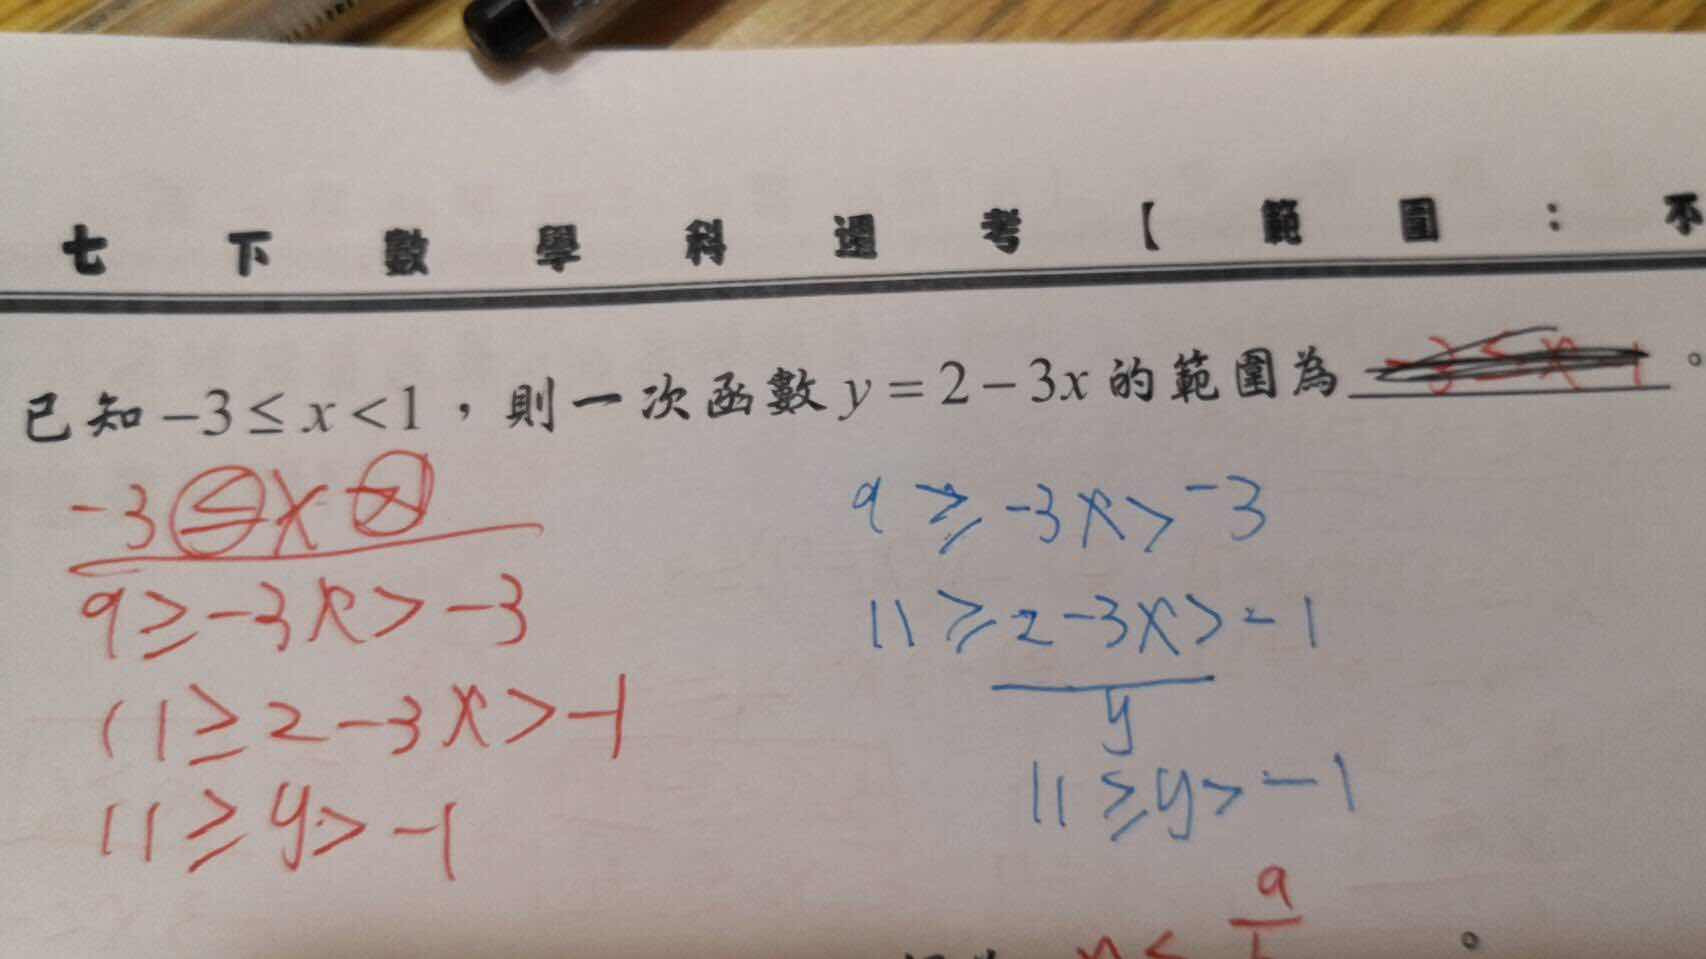 七下數學科週考【範圍：不
已知 -3 ≤ x < 1，則一次函數 y = 2 - 3x 的範圍為 。
-3 ≤ x
9 ≥ -3x > -3
11 ≥ 2 - 3x > -1
11 ≥ y > -1
9 ≥ -3x > -3
11 ≥ 2 - 3x > -1
y
11 ≥ y > -1
9